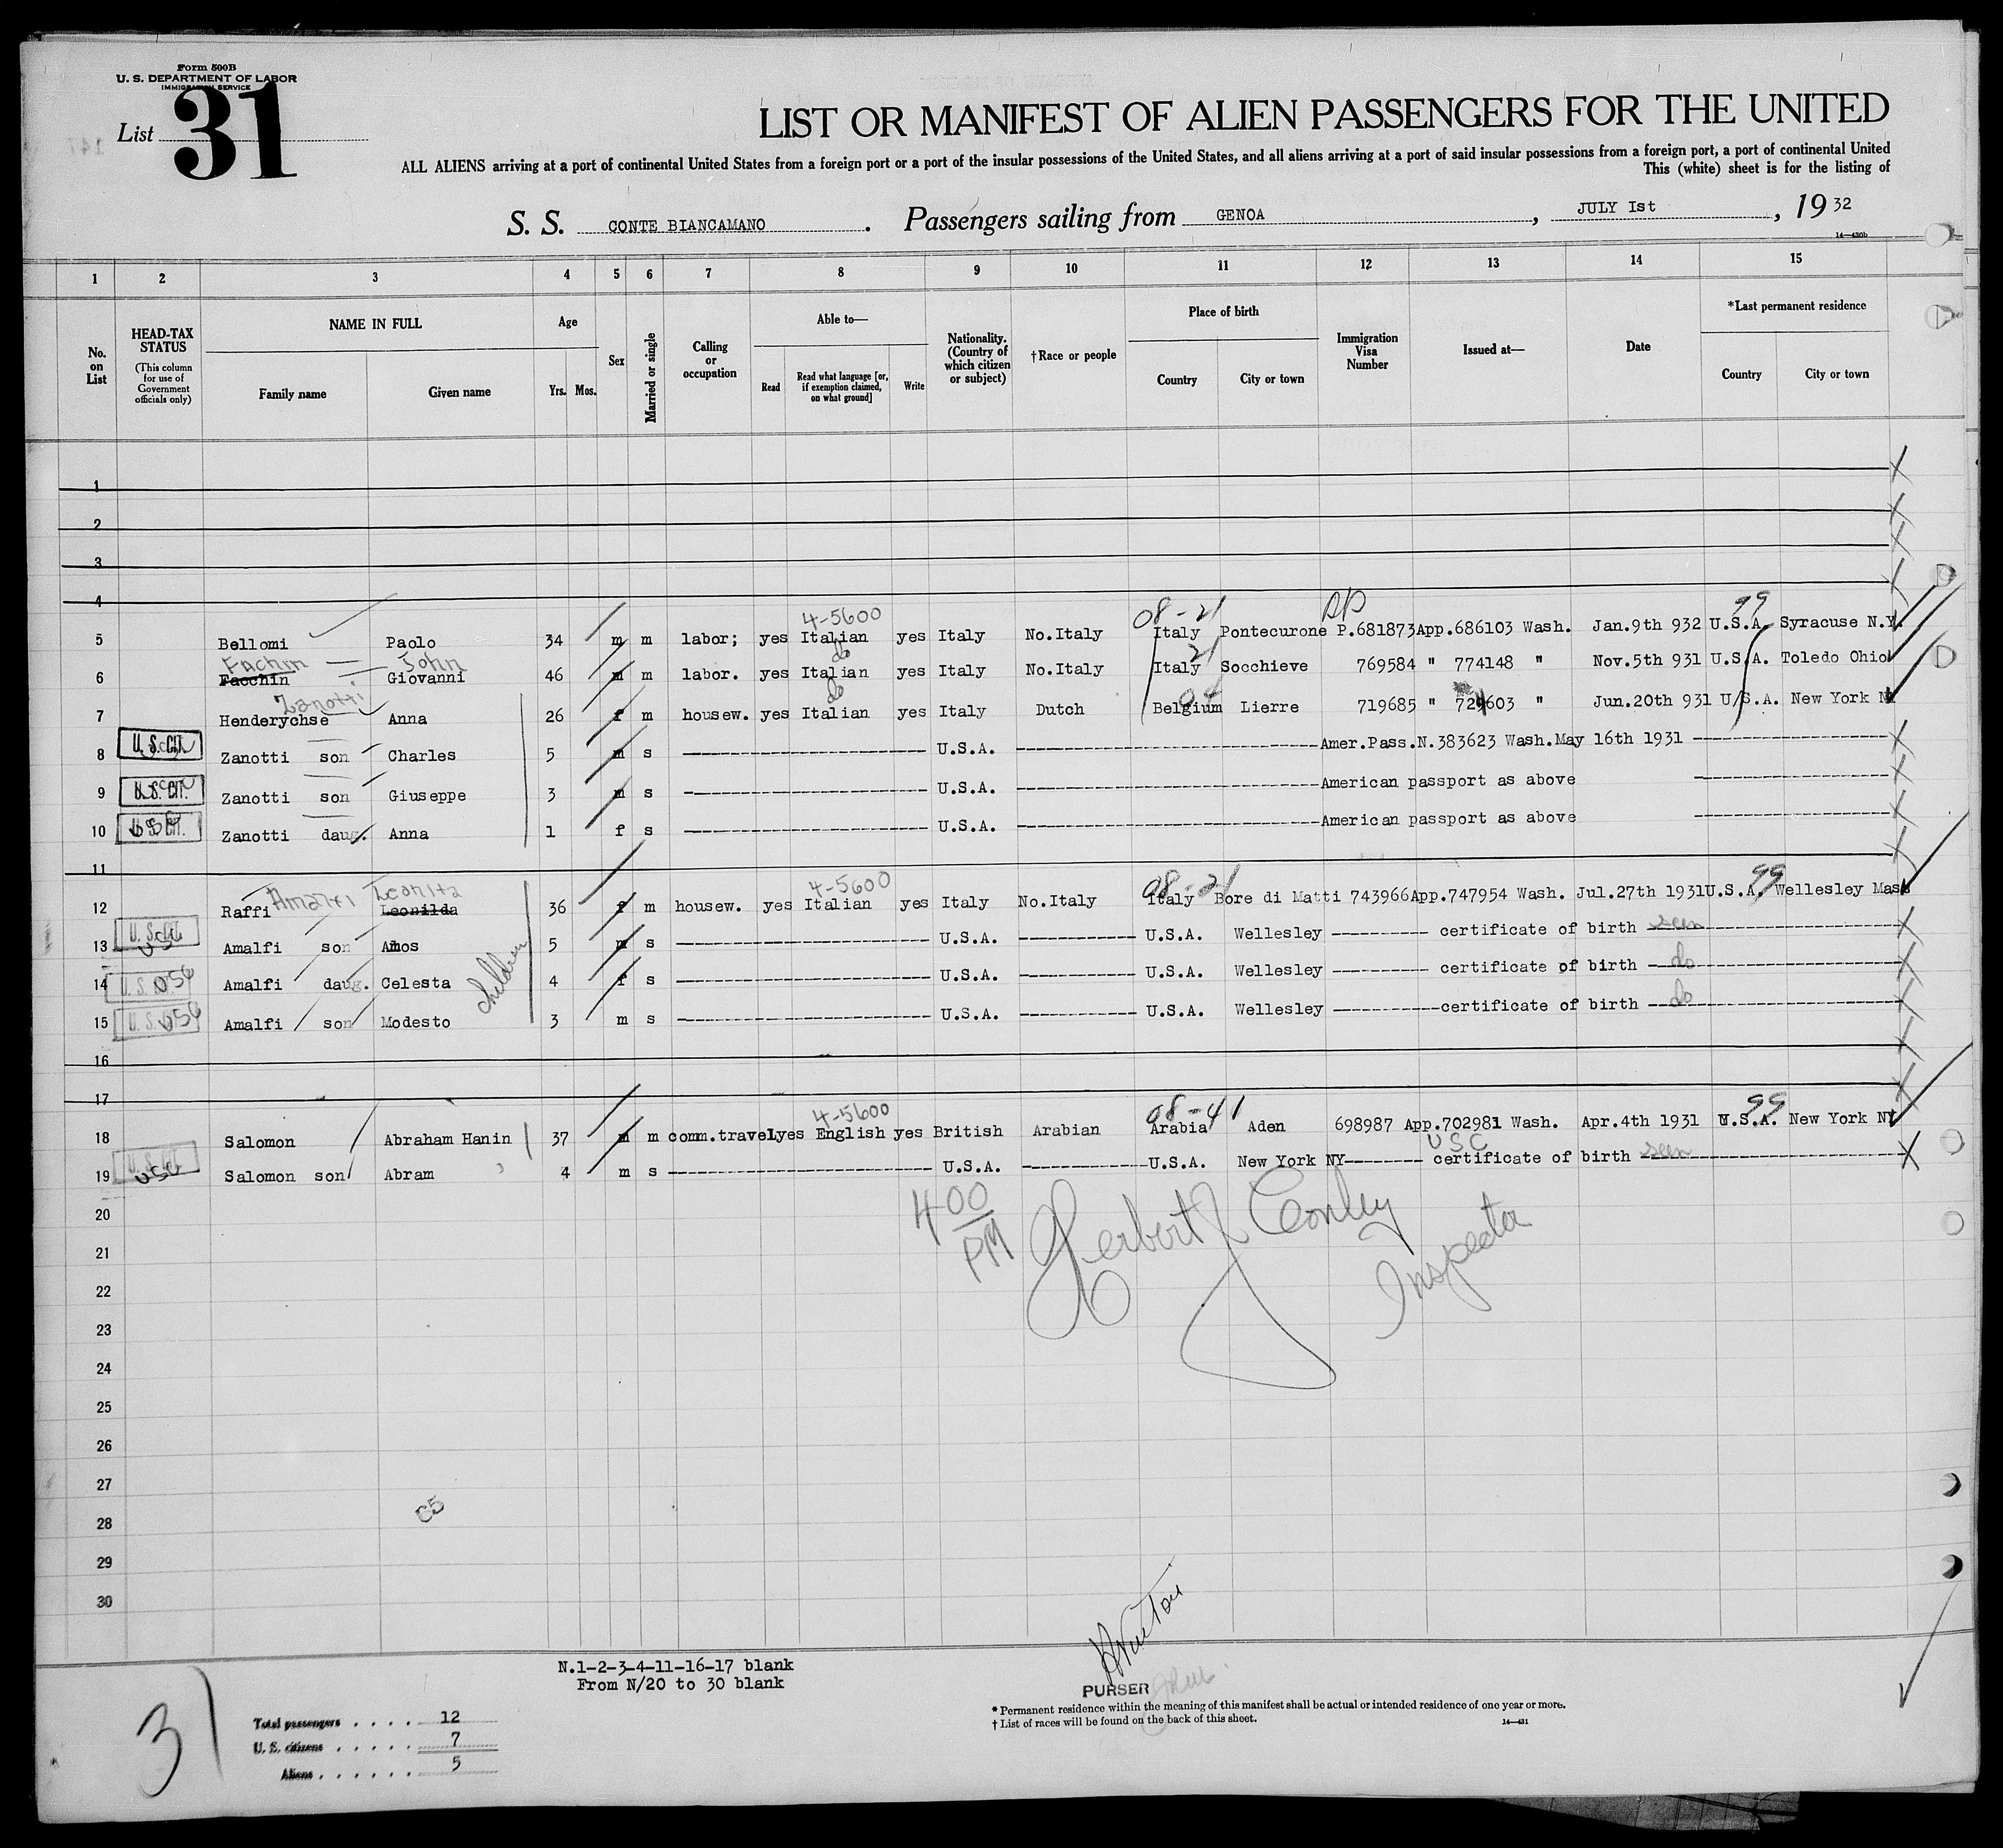 Form 500B
U. S. DEPARTMENT OF LABOR
IMMIGRATION SERVICE
List 31
LIST OR MANIFEST OF ALIEN PASSENGERS FOR THE UNITED
ALL ALIENS arriving at a port of continental United States from a foreign port or a port of the insular possessions of the United States, and all aliens arriving at a port of said insular possessions from a foreign port, a port of continental United
This (white) sheet is for the listing of
S. S. CONTE BIANCAMANO. Passengers sailing from GENOA, JULY 1st, 19 32
14—430b
1 2 3 4 5 6 7 8 9 10 11 12 13 14 15
No. on List
HEAD-TAX STATUS
(This column for use of Government officials only)
NAME IN FULL
Family name
Given name
Age
Yrs. Mos.
Sex
Married or single
Calling or occupation
Able to—
Read
Read what language [or, if exemption claimed, on what ground]
Write
Nationality. (Country of which citizen or subject)
†Race or people
Place of birth
Country
City or town
Immigration Visa Number
Issued at—
Date
*Last permanent residence
Country
City or town
1
2
3
4
4-5600 08-21 99
5 Bellomi Paolo 34 m m labor; yes Italian yes Italy No.Italy Italy Pontecurone P.681873 App.686103 Wash. Jan.9th 932 U.S.A. Syracuse N.Y.
Fachin John do 21
6 Facchin Giovanni 46 m m labor. yes Italian yes Italy No.Italy Italy Socchieve 769584 " 774148 " Nov.5th 931 U.S.A. Toledo Ohio
Zanotti do
7 Henderychse Anna 26 f m housew. yes Italian yes Italy Dutch Belgium Lierre 719685 " 724603 " Jun.20th 931 U.S.A. New York N
8 U.S. CIT. Zanotti son Charles 5 m s U.S.A. Amer.Pass.N.383623 Wash.May 16th 1931
9 U.S. CIT. Zanotti son Giuseppe 3 m s U.S.A. American passport as above
10 U.S. CIT. Zanotti daug. Anna 1 f s U.S.A. American passport as above
11
Amalfi Leonita 4-5600 08-21 99
12 Raffi Leonilda 36 f m housew. yes Italian yes Italy No.Italy Italy Bore di Matti 743966 App.747954 Wash. Jul.27th 1931 U.S.A. Wellesley Mass
13 U.S. CIT. USC Amalfi son Amos 5 m s U.S.A. U.S.A. Wellesley certificate of birth seen
14 U.S. Amalfi daug. Celesta 4 f s U.S.A. U.S.A. Wellesley certificate of birth do
15 U.S. Amalfi son Modesto 3 m s U.S.A. U.S.A. Wellesley certificate of birth do
children
16
17
4-5600 08-41 99
18 Salomon Abraham Hanin 37 m m comm.travel yes English yes British Arabian Arabia Aden 698987 App.702981 Wash. Apr.4th 1931 U.S.A. New York NY
USC
19 U.S. CIT. USC Salomon son Abram 4 m s U.S.A. U.S.A. New York NY certificate of birth seen
20
21
22
23
24
25
26
27
28
29
30
4 00 PM Herbert J Conley Inspector
C5
N.1-2-3-4-11-16-17 blank
From N/20 to 30 blank
PURSER
* Permanent residence within the meaning of this manifest shall be actual or intended residence of one year or more.
† List of races will be found on the back of this sheet.
14—431
31
Total passengers . . . . 12
U. S. citizens . . . . . 7
Aliens . . . . . . 5